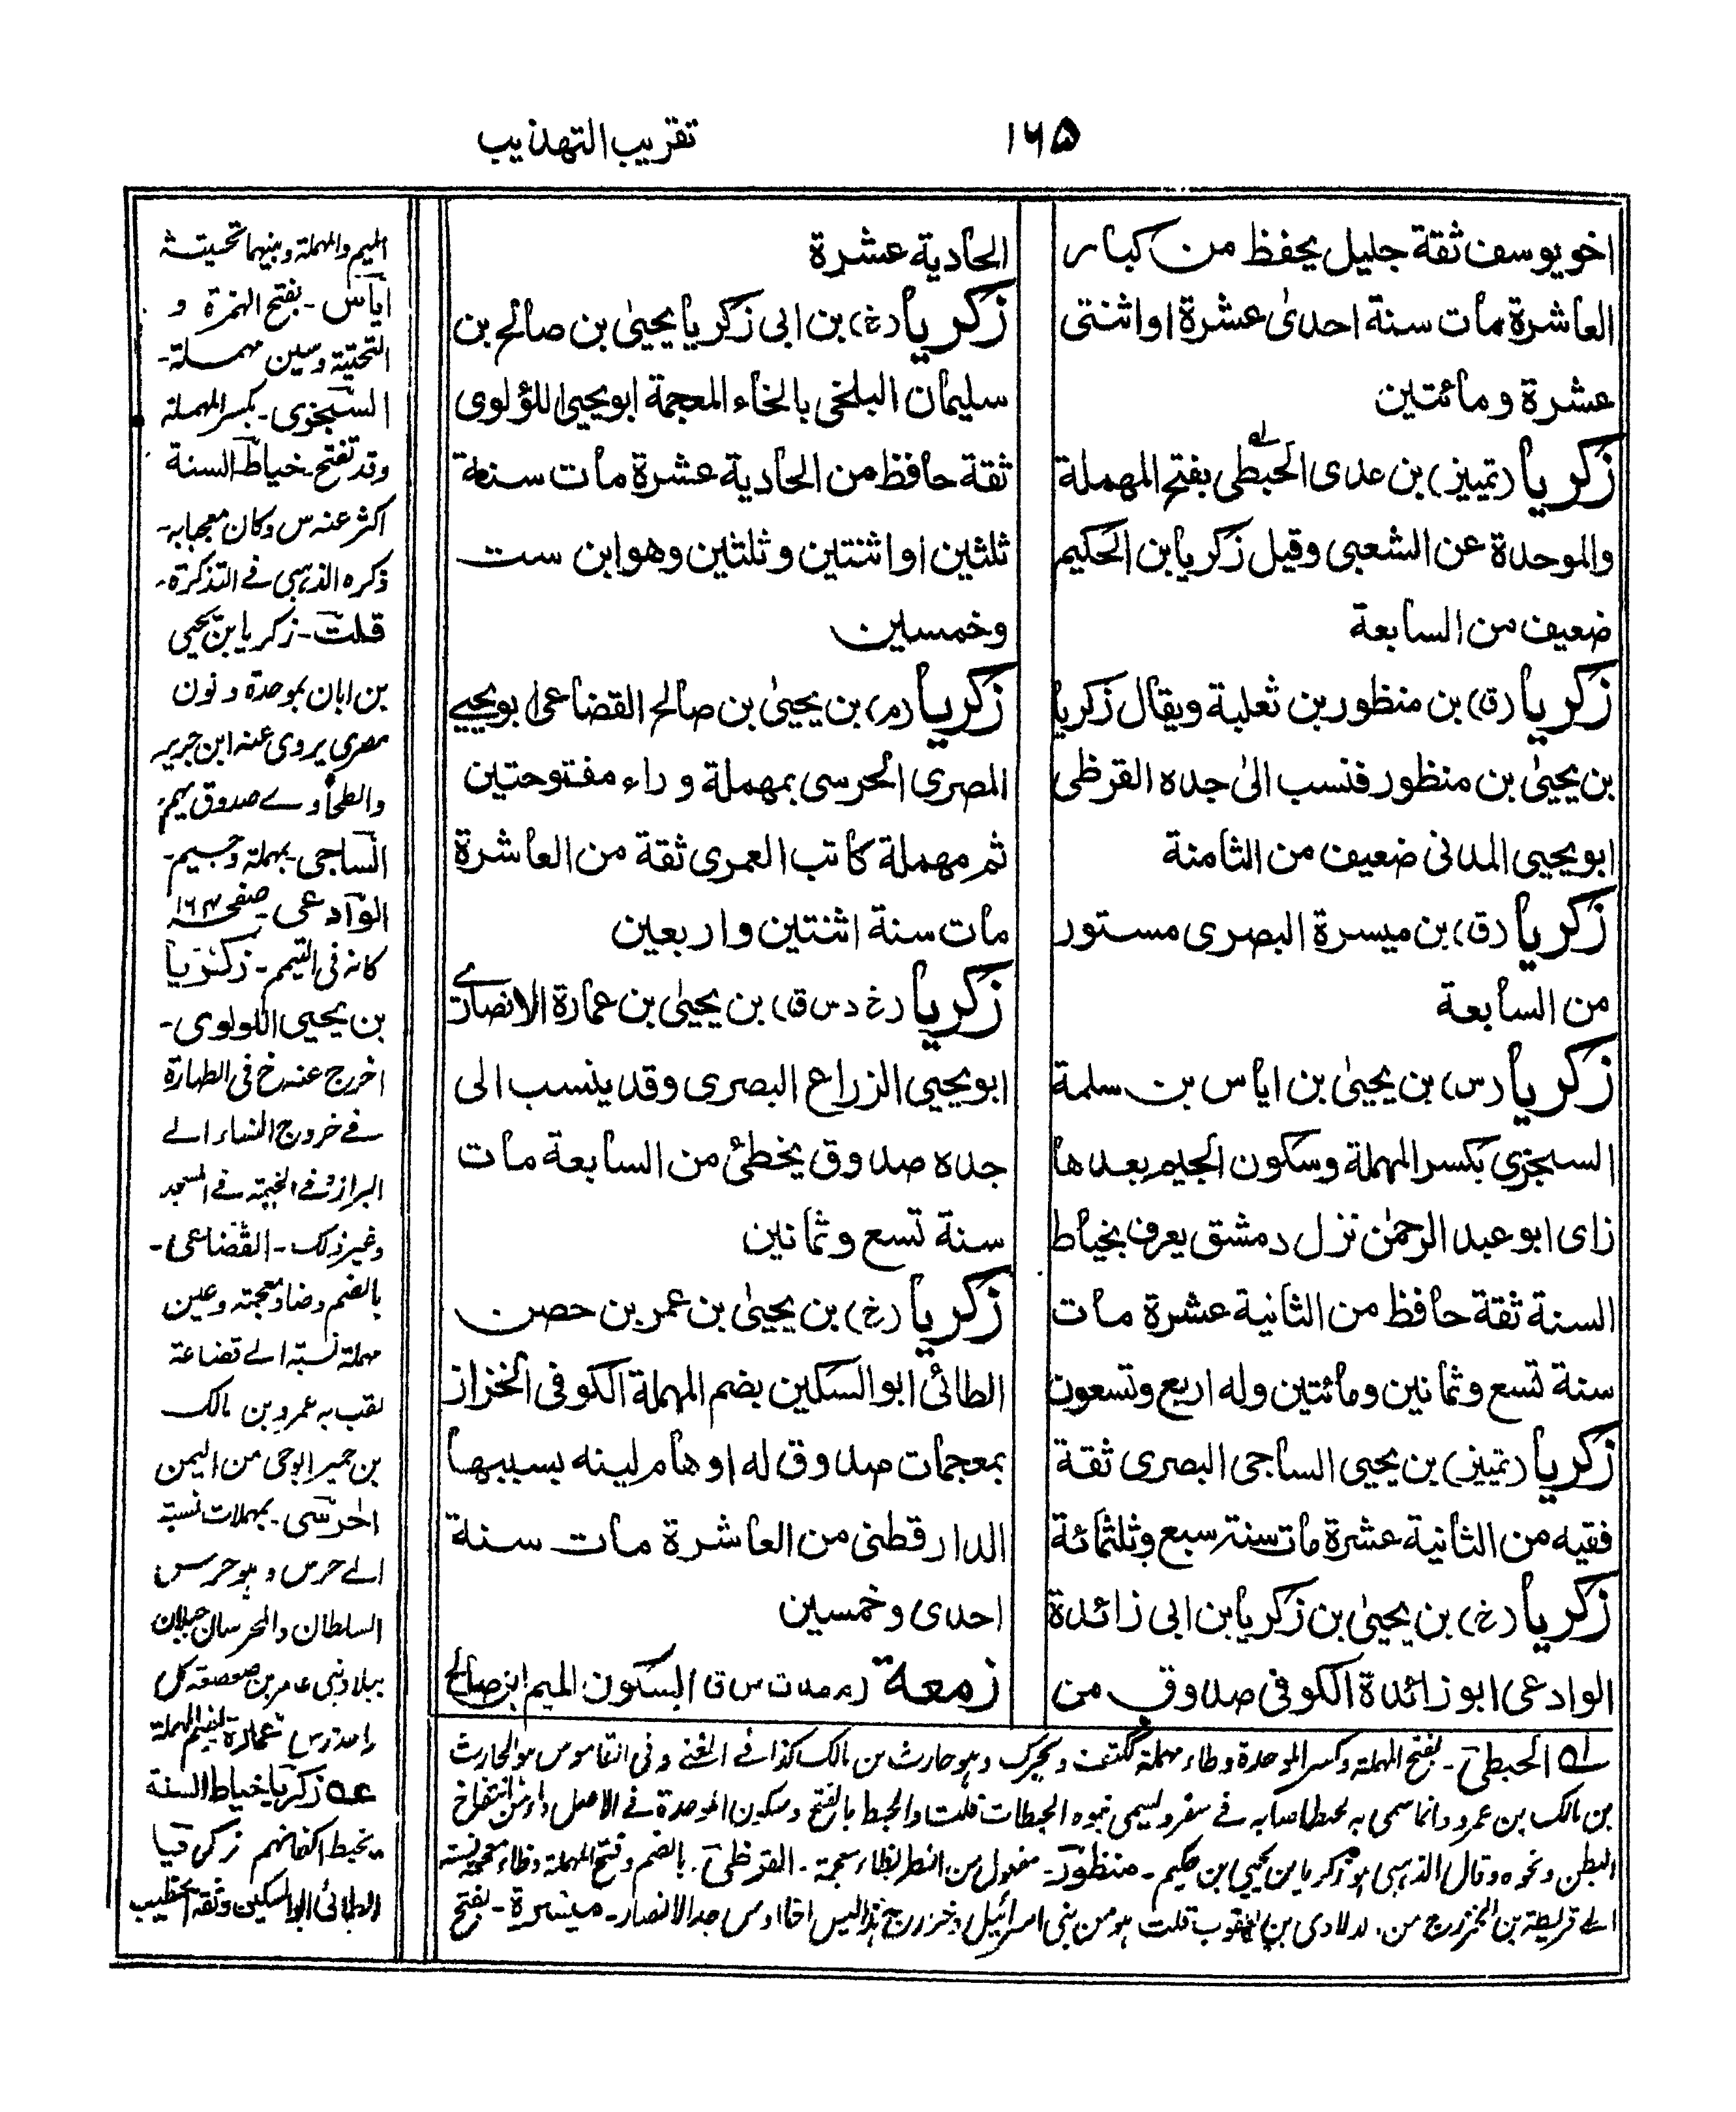 ١٦٥
تقريب التهذيب
اخو يوسف ثقة جليل يحفظ من كبار
العاشرة مات سنة احدى عشرة او اثنتى
عشرة ومائتين
زكريا (تمييز) بن عدى الحبطى بفتح المهملة
والموحدة عن الشعبى وقيل زكريا ابن الحكيم
ضعيف من السابعة
زكريا (ق) بن منظور بن ثعلبة ويقال زكريا
بن يحيىٰ بن منظور فنسب الىٰ جده القرظى
ابو يحيى المدنى ضعيف من الثامنة
زكريا (ق) بن ميسرة البصرى مستور
من السابعة
زكريا (س) بن يحيىٰ بن اياس بن سلمة
السجزى بكسر المهملة وسكون الجيم بعدها
زاى ابو عبد الرحمٰن نزل دمشق يعرف بخياط
السنة ثقة حافظ من الثانية عشرة مات
سنة تسع وثمانين ومائتين وله اربع وتسعون
زكريا (تمييز) بن يحيى الساجى البصرى ثقة
فقيه من الثانية عشرة مات سنة سبع وثلثمائة
زكريا (خ) بن يحيىٰ بن زكريا بن ابى زائدة
الوادعى ابو زائدة الكوفى صدوق من
الحادية عشرة
زكريا (خ) بن ابى زكريا يحيىٰ بن صالح بن
سليمان البلخى بالخاء المعجمة ابو يحيى اللؤلوى
ثقة حافظ من الحادية عشرة مات سنة
ثلثين او اثنتين وثلثين وهو ابن ست
وخمسين
زكريا (م) بن يحيىٰ بن صالح القضاعى ابو يحيے
المصرى الحرسى بمهملة وراء مفتوحتين
ثم مهملة كاتب العمرى ثقة من العاشرة
مات سنة اثنتين واربعين
زكريا (خ د س ق) بن يحيىٰ بن عمارة الانصارے
ابو يحيى الزراع البصرى وقد ينسب الى
جده صدوق يخطئ من السابعة مات
سنة تسع وثمانين
زكريا (خ) بن يحيىٰ بن عمر بن حصن
الطائى ابو السكين بضم المهملة الكوفى الخزاز
بمعجمات صدوق له اوهام لينه بسببها
الدارقطنى من العاشرة مات سنة
احدى وخمسين
زمعة (م مد ت س ق) بسكون الميم ابن صالح
الميم والمهملة وبينهما تحيتة
اياس - بفتح الهمزة و
التحتية وسين مهملة -
السجزى - بكسر المهملة
وقد تفتح - خياط السنة
اكثر عنه س وكان معجبا به -
ذكره الذهبى فے التذكرة -
قلت - زكريا بن يحيى
بن ابان بموحدة ونون
مصرى يروى عنه ابن جرير
والطحاوے صدوق يهم -
الساجى - بمهملة وجيم -
الوادعى - صفحه ١٦٤
كانه فى التيمم - زكريا
بن يحيى اللولوى -
اخرج عنه خ فى الطهارة
فے خروج النساء الے
البراز وفے الخيمة فے المسجد
وغير ذلك - القضاعى -
بالضم وضاد معجمة وعين
مهملة نسبة الے قضاعة
لقب به عمرو بن مالك
بن حمير ابو حى من اليمن
الحرسى - بمهملات نسبة
الے حرس وهو حرس
السلطان والحرسان جبلان
ببلاد بنى عامر بن صعصعة كل
واحد حرس عمارة - بضم المهملة
عه زكريا خياط السنة
يخيط اكفانهم زكريا
الطائى ابو السكين وثقه الخطيب
له الحبطى - بفتح المهملة وكسر الموحدة وطاء مهملة ككتف ويحرك وهو حارث بن مالك كذا فے المغنے وفى القاموس هو الحارث
بن مالك بن عمرو وانما سمى به لحبط اصابه فے سفر ويسمى بنوه الحبطات قلت والحبط بالفتح وسكون الموحدة فے الاصل داء من انتفاخ
البطن ونحوه وقال الذهبى هو زكريا بن يحيى بن حكيم - منظور - مفعول من النظر بظاء معجمة - القرظى - بالضم وفتح المهملة وظاء معجمة نسبة
الے قريظة بن الخزرج من ولد لاوى بن يعقوب قلت هو من بنى اسرائيل وخزرج هذا ليس اخا اوس جد الانصار - ميسرة - بفتح